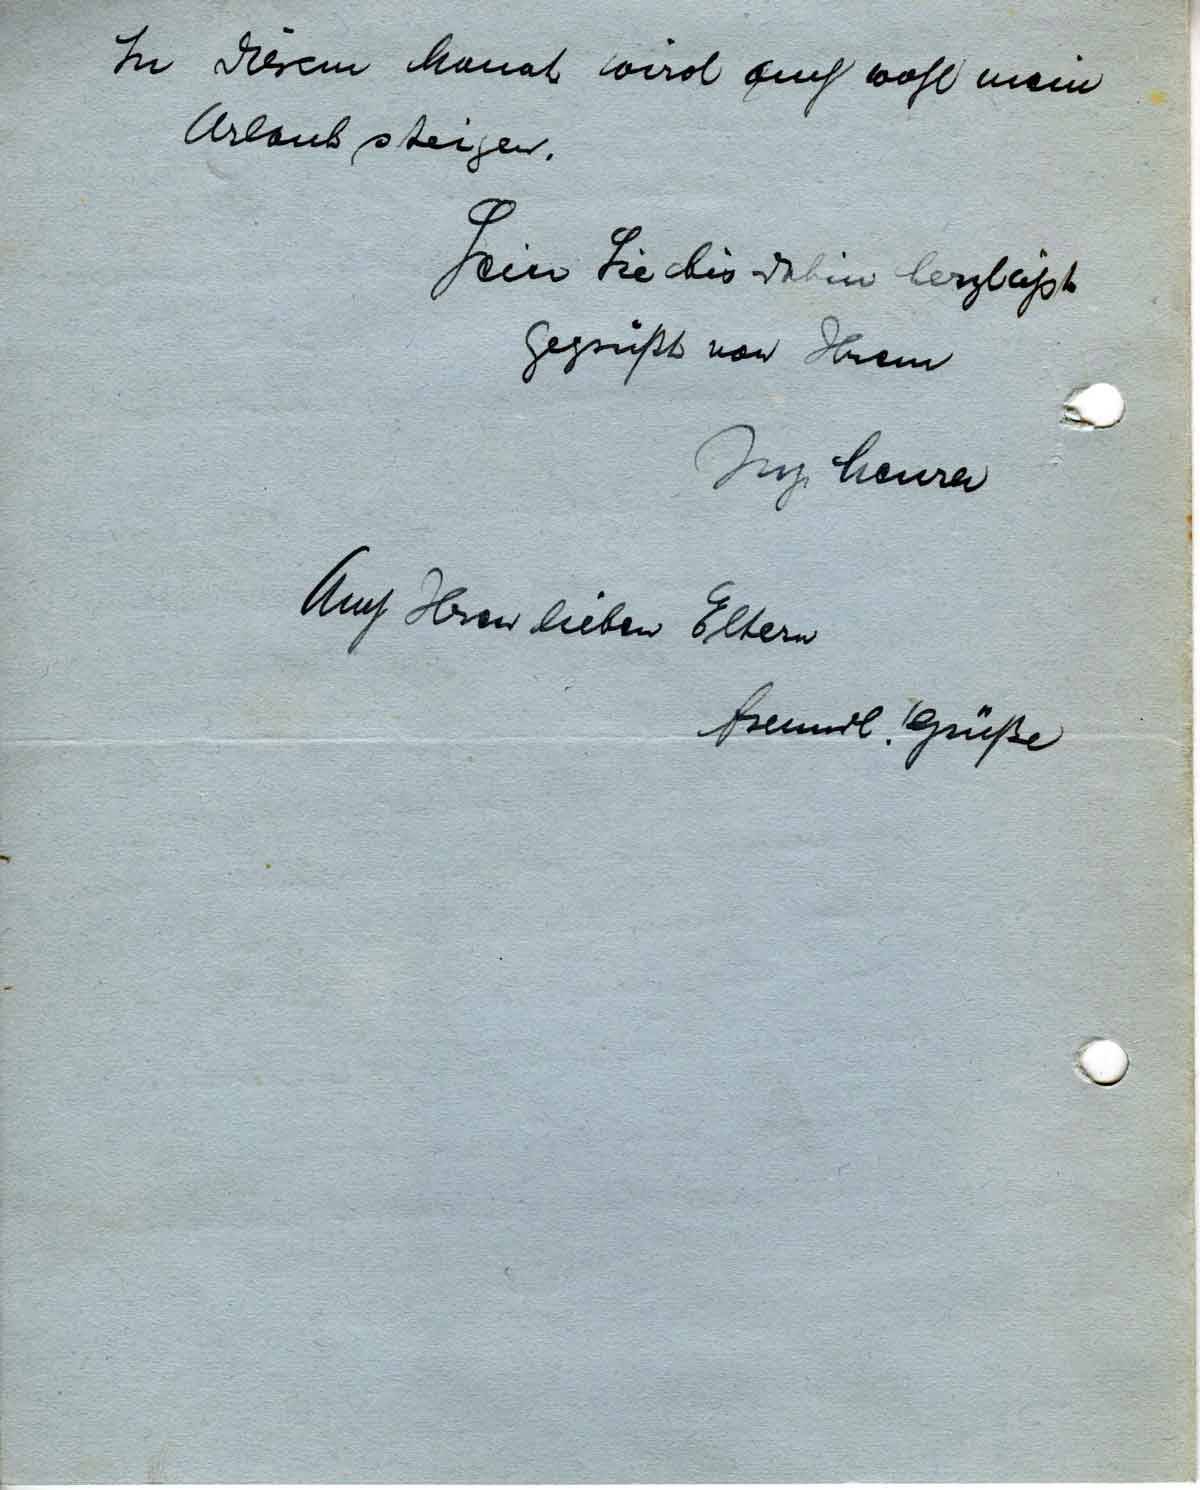 In diesem Monat wird auch wohl mein
Urlaub steigen.
Seien Sie bis dahin herzlichst
gegrüßt von Ihrem
Auch Ihren lieben Eltern
freundl. Grüße